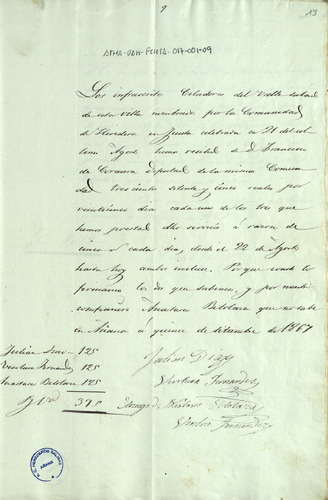 9
13
ATHA-DAH-FCHSA-017-001-09
Los infrascritos Celadores del Valle salado
de esta villa nombrados por la Comunidad
de Herederos en Junta celebrada en 21 del
Agosto hemos recibido de D. Francisco
de Deposit de la misma
dad trescientos setenta y cinco reales por
veinticinco dias cada uno de los tres que
hemos prestado dho servicio á razon de
cinco r cada dia, desde el 22 de Agosto
hasta hoy ambos inclusive. Porque conste lo
firmamos los dos que sabemos, y por nuestro
compañero Anastasio que no sabe
en Añana á quince de Setiembre de 1867
Julian Diaz 125
Ventura Fernandez 125
Anastasio 125
375
Julian Diaz
Ventura Fernandez
Arruego de Anastasio
Ventura Fernandez
AÑANA